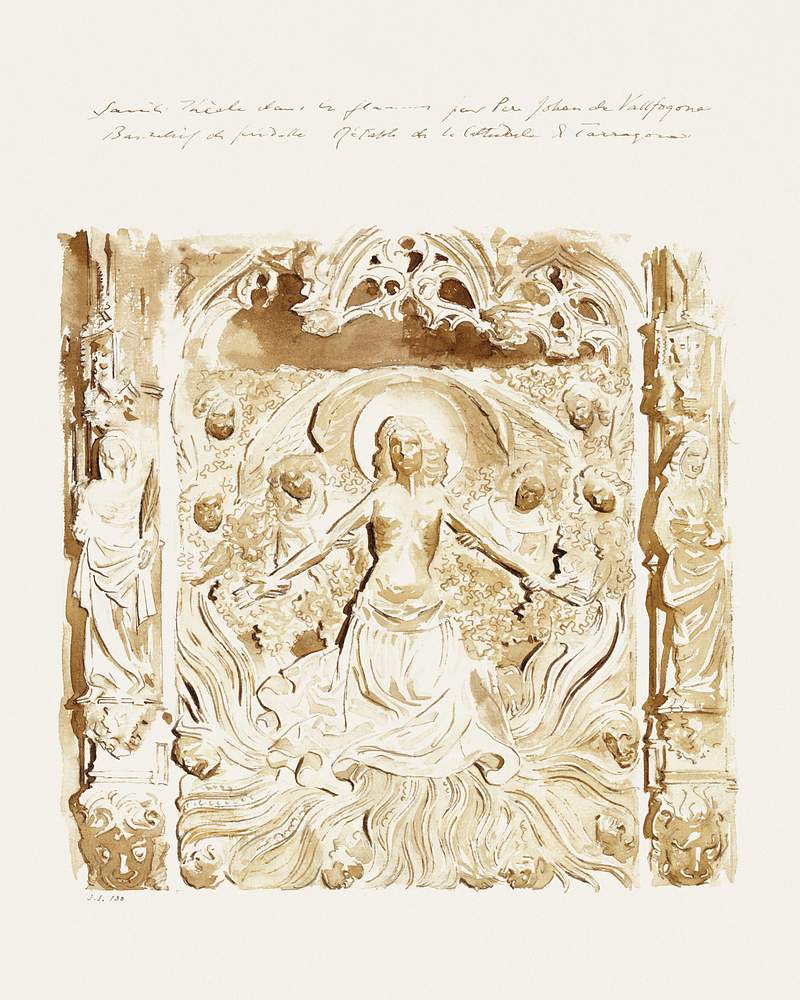 Sainte Thècle dans les flammes par Pere Johan de Vallfogona
Bas-relief de prédelle Retable de la Cathédrale de Tarragona
J.S. 130